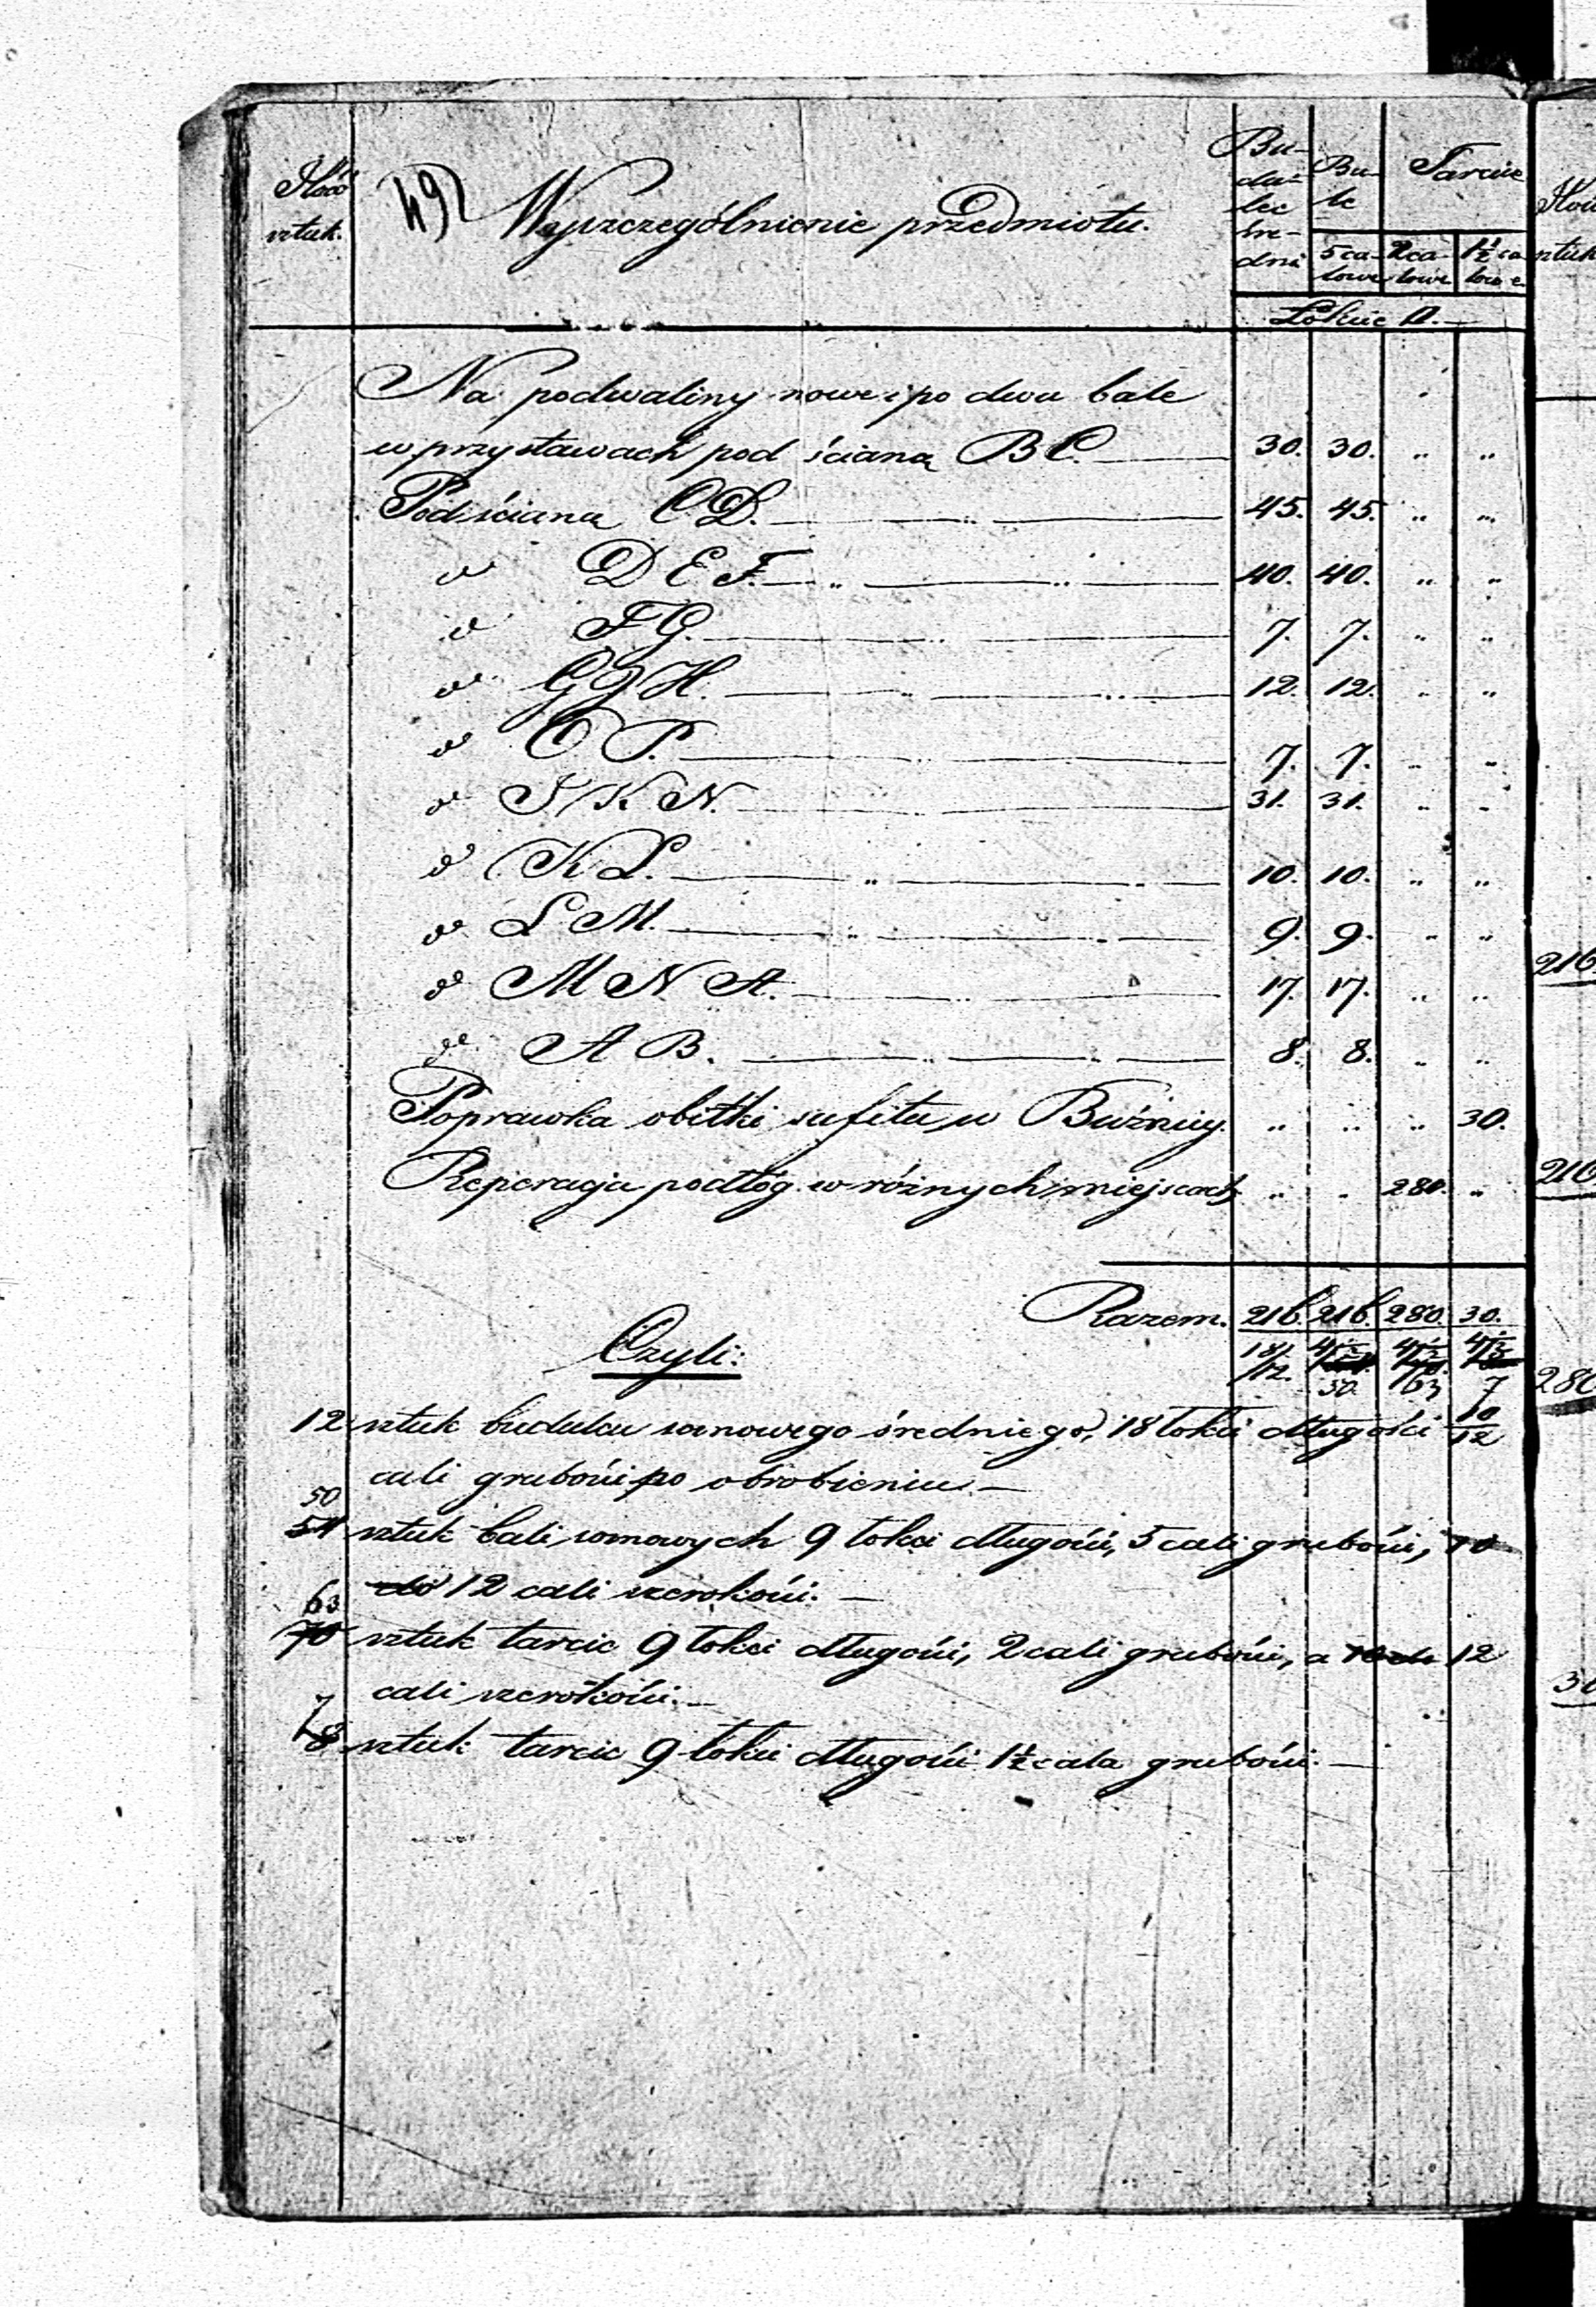 Ilość sztuk. 492 Wyszczególnienie przedmiotu. Bu-dulec śre-dni Ba-le 5 ca-lowe Tarcice 2 ca-lowe 1½ ca-lowe
Łokcie D.
Na podwaliny nowe i po dwa bale
w przystawach pod ścianą B C. 30. 30. „ „
Pod ścianą C D. 45. 45. „ „
do D E F. 40. 40. „ „
do F G. 7. 7. „ „
do G J H. 12. 12. „ „
do O P. 7. 7. „ „
do J K N. 31. 31. „ „
do K L. 10. 10. „ „
do L M. 9. 9. „ „
do M N A. 17. 17. „ „
do A B. 8. 8. „ „
Poprawka obitki sufitu w Bużnicy. „ „ „ 30.
Reperacja podłóg w różnych miejscach „ „ 280. „
Razem. 216. 216. 280. 30.
Czyli: 18/12. 4½ 4½ 4½
50. 63 7
12 sztuk budulcu sosnowego średniego, 18 łokci długości 10/12
cali grubości po obrobieniu.
50
54 sztuk bali sosnowych 9 łokci długości, 5 cali grubości, 10
do 12 cali szerokości.
63
70 sztuk tarcic 9 łokci długości, 2 cali grubości, a 10 do 12
cali szerokości.
7
8 sztuk tarcic 9 łokci długości 1½ cala grubości.
216
216
280